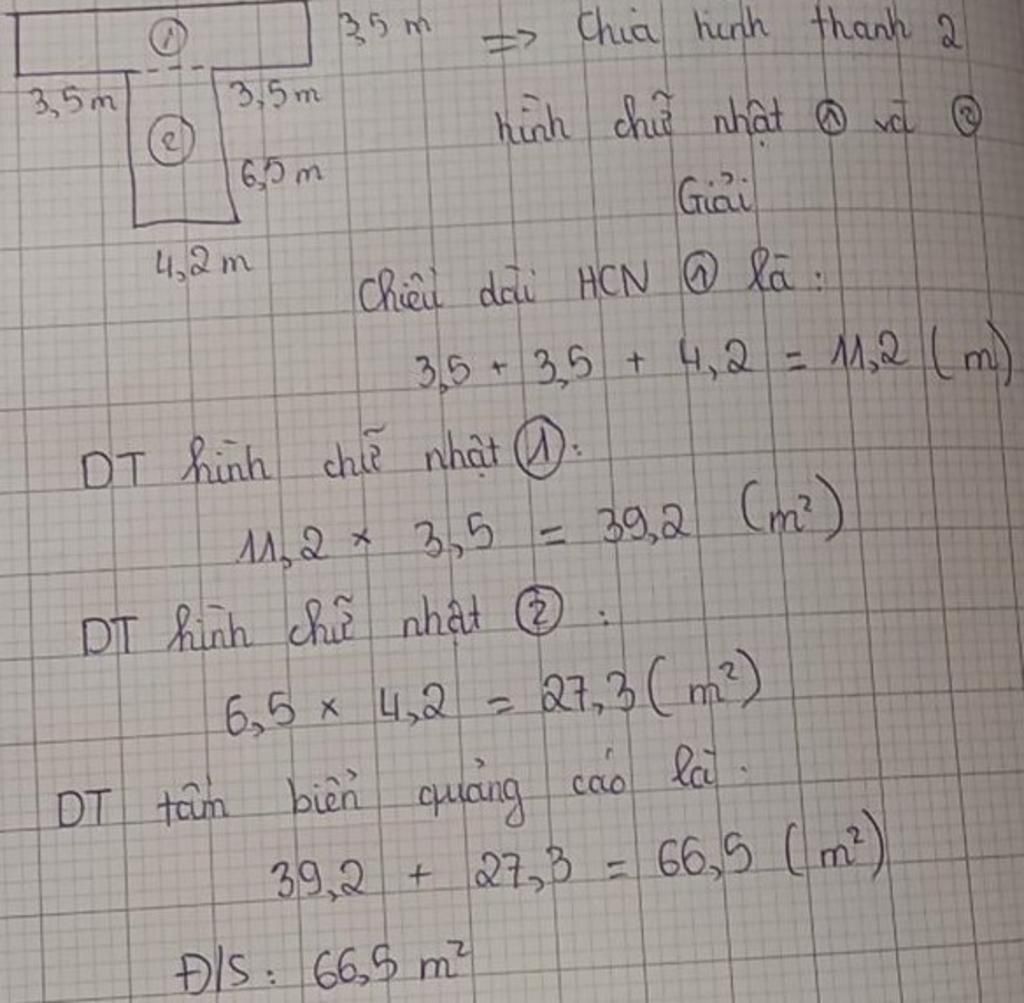 ① 3,5 m => Chia hình thành 2
3,5 m 3,5 m hình chữ nhật ① và ②
② 6,5 m
Giải
4,2 m
Chiều dài HCN ① là :
3,5 + 3,5 + 4,2 = 11,2 (m)
DT hình chữ nhật ① :
11,2 × 3,5 = 39,2 (m²)
DT hình chữ nhật ② :
6,5 × 4,2 = 27,3 (m²)
DT tấm biển quảng cáo là .
39,2 + 27,3 = 66,5 (m²)
Đ/S : 66,5 m²